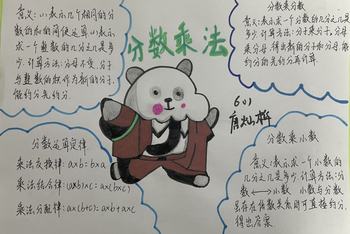 分数乘法
意义:(1)表示几个相同的分
数的和的简便运算(2)表示
求一个整数的几分之几是
多少.计算方法:分母不变,分子
与整数的积作为新的分子,
能约分先约分.
分数乘分数
意义:表示求一个分数的几分之几是
多少.计算方法:分子乘分子,分母
乘分母,得出新的分子和分母,能
约分的先约分再计算.
601
分数运算定律
乘法交换律:a×b=b×a
乘法结合律:(a×b)×c=a×(b×c)
乘法分配律:a×(b+c)=a×b+a×c
分数乘小数
意义:表示求一个小数的
几分之几是多少.计算方法:分
数⟷小数 小数与分数
若存在倍数关系时可直接约分,
得出答案